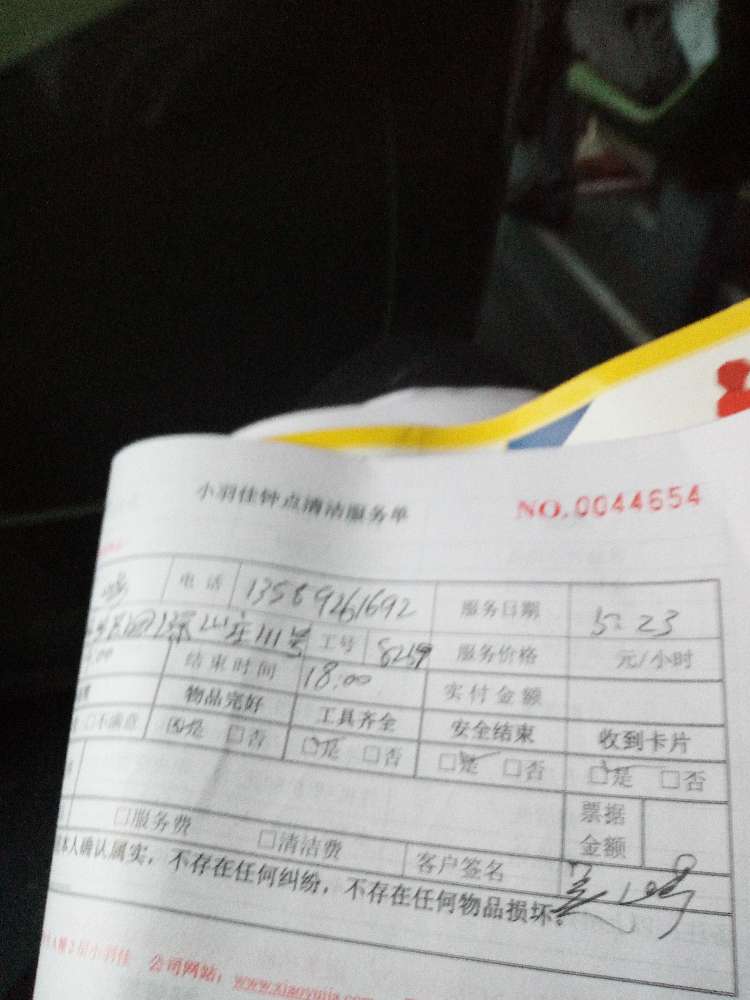 小羽佳钟点清洁服务单 NO.0044654
电话 13589261692 服务日期 5:23
111号 工号 8259 服务价格 元/小时
结束时间 18:00 实付金额
物品完好 工具齐全 安全结束 收到卡片
□不满意 □是 □否 □是 □否 □是 □否 □是 □否
票据金额
□服务费 □清洁费 客户签名
本人确认属实，不存在任何纠纷，不存在任何物品损坏。
2层小羽佳 公司网站：